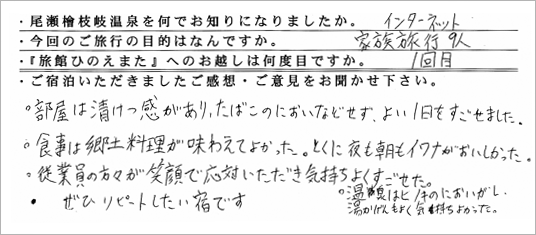 ・尾瀬檜枝岐温泉を何でお知りになりましたか。 インターネット
・今回のご旅行の目的はなんですか。 家族旅行 9人
・『旅館ひのえまた』へのお越しは何度目ですか。 1回目
・ご宿泊いただきましたご感想・ご意見をお聞かせ下さい。
○部屋は清けつ感があり、たばこのにおいなどせず、よい1日をすごせました。
○食事は郷土料理が味わえてよかった。とくに夜も朝もイワナがおいしかった。
○従業員の方々が笑顔で応対いただき気持ちよくすごせた。
○温泉はヒノキのにおいがし、
湯かげんもよく気持ちよかった。
● ぜひリピートしたい宿です